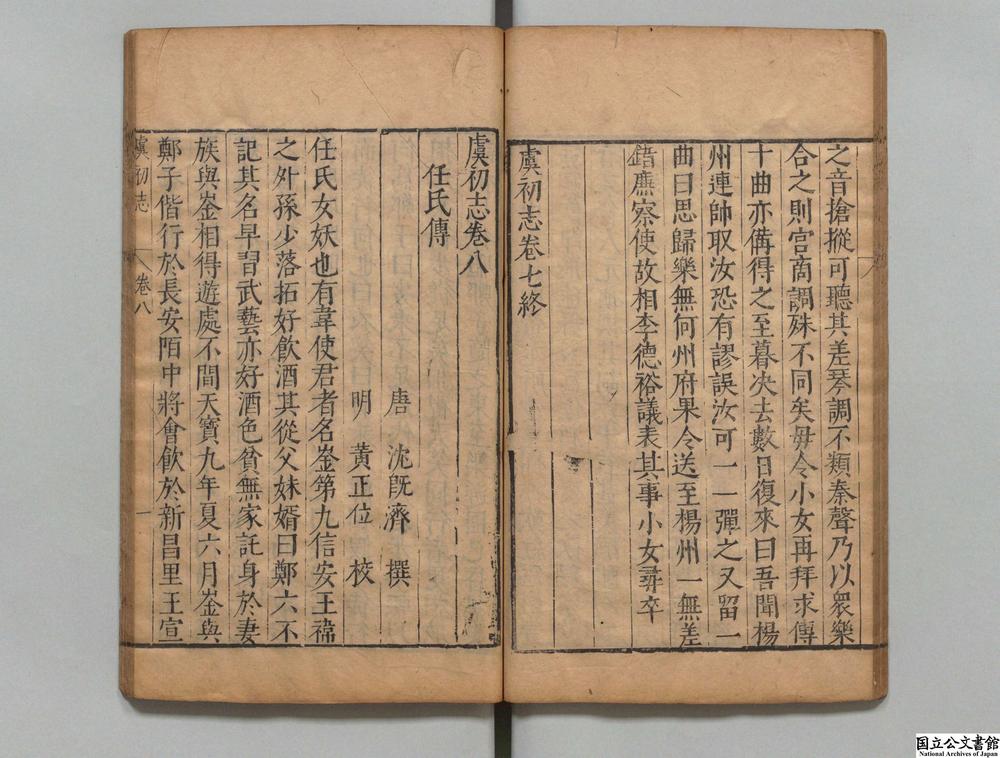 之音搶摐可聽其差琴調不類秦聲乃以衆樂
合之則宮商調殊不同矣毋令小女再拜求傳
十曲亦備得之至暮决去數日復來曰吾聞楊
州連帥取汝恐有謬誤汝可一一彈之又留一
曲曰思歸樂無何州府果令送至楊州一無差
錯廉察使故相李德裕議表其事小女尋卒
虞初志卷七終
虞初志卷八
任氏傳
唐 沈旣濟 撰
明 黃正位 校
任氏女妖也有韋使君者名崟第九信安王禕
之外孫少落拓好飲酒其從父妹婿曰鄭六不
記其名早習武藝亦好酒色貧無家託身於妻
族與崟相得遊處不間天寶九年夏六月崟與
鄭子偕行於長安陌中將會飲於新昌里王宣
虞初志 卷八 一
国立公文書館
National Archives of Japan